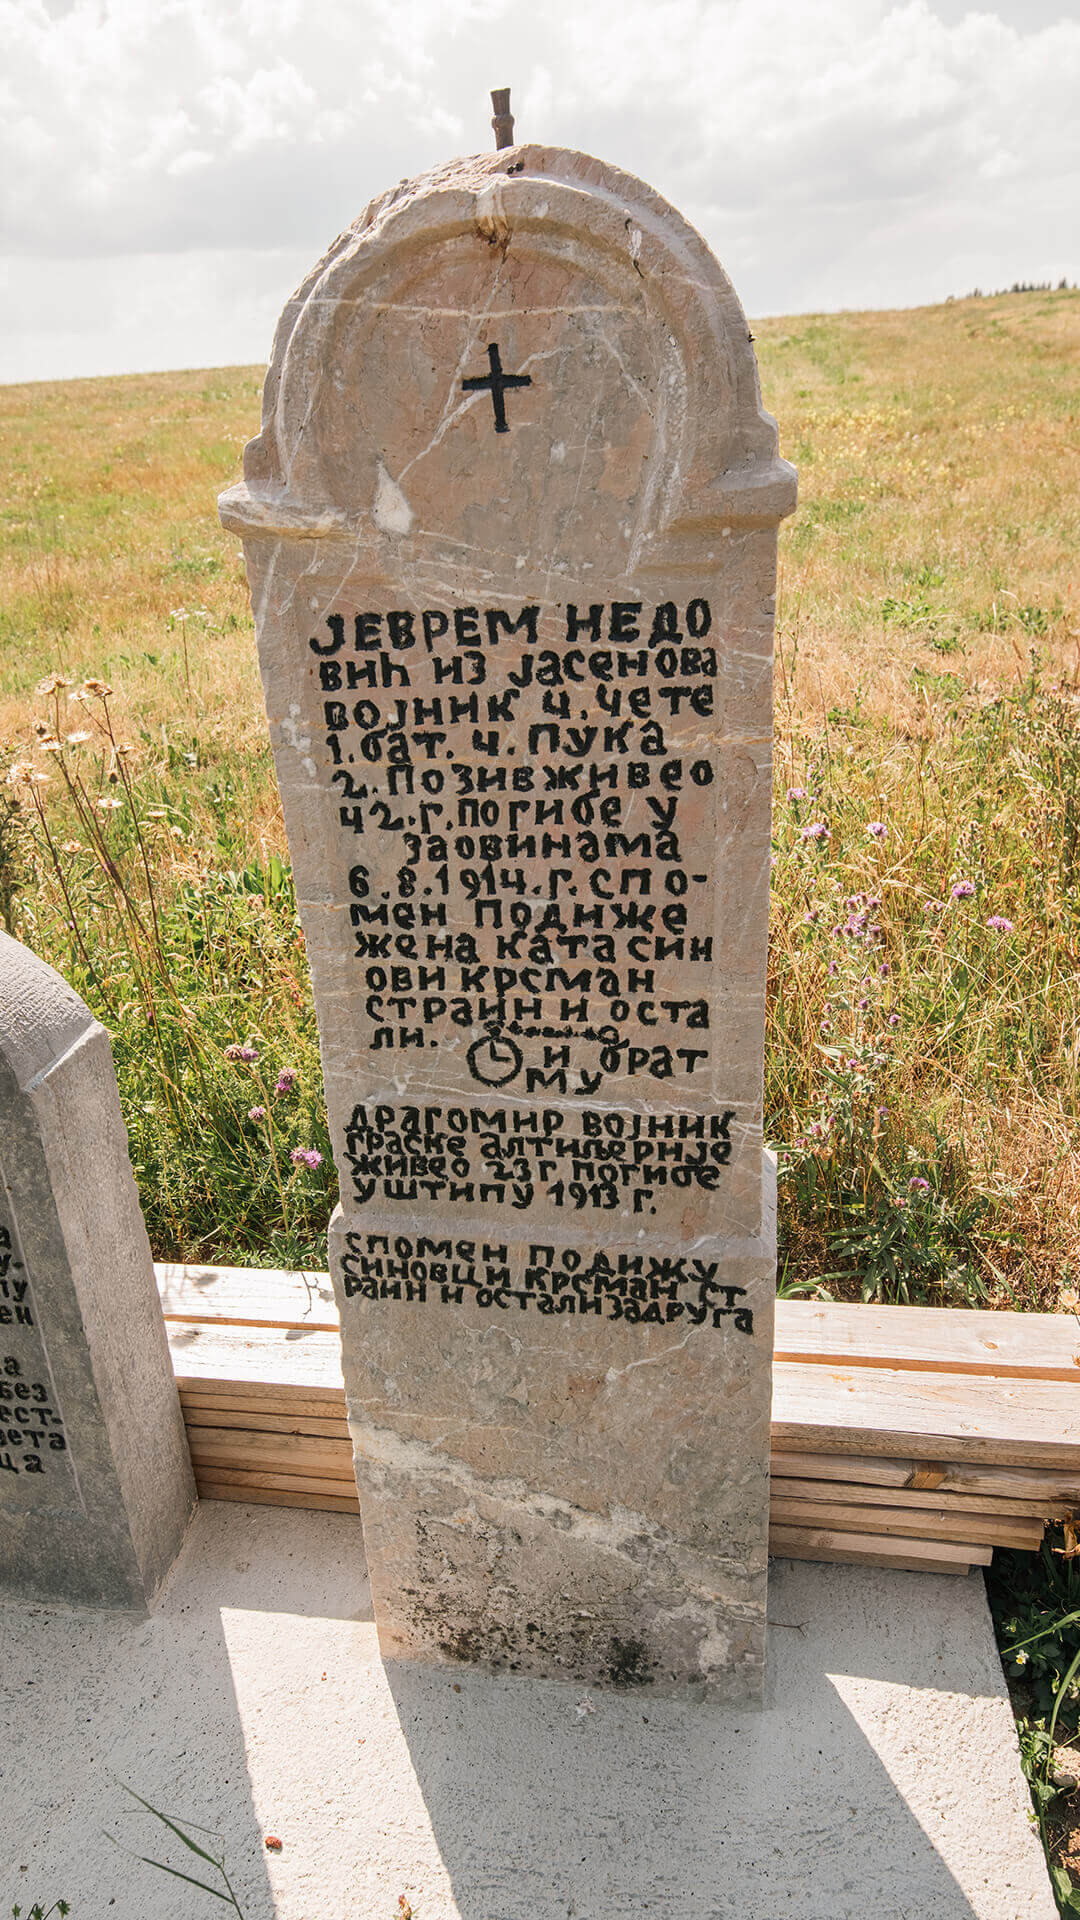 ЈЕВРЕМ НЕДО
ВИЋ ИЗ ЈАСЕНОВА
ВОЈНИК 4. ЧЕТЕ
1. баТ. 4. ПУКА
2. ПОЗИВ ЖИВЕО
42. Г. ПОГИБЕ У
ЗАОВИНАМА
6. 8. 1914. Г. СПО-
МЕН ПОДИЖЕ
ЖЕНА КАТА СИН
ОВИ КРСМАН
СТРАИН И ОСТА
ЛИ.
И БРАТ
МУ
ДРАГОМИР ВОЈНИК
ГРАСКЕ АЛТИЉЕРИЈЕ
ЖИВЕО 23 Г ПОГИБЕ
У ШТИПУ 1913 Г.
СПОМЕН ПОДИЖУ
СИНОВЦИ КРСМАН СТ
РАИН И ОСТАЛИ ЗАДРУГА